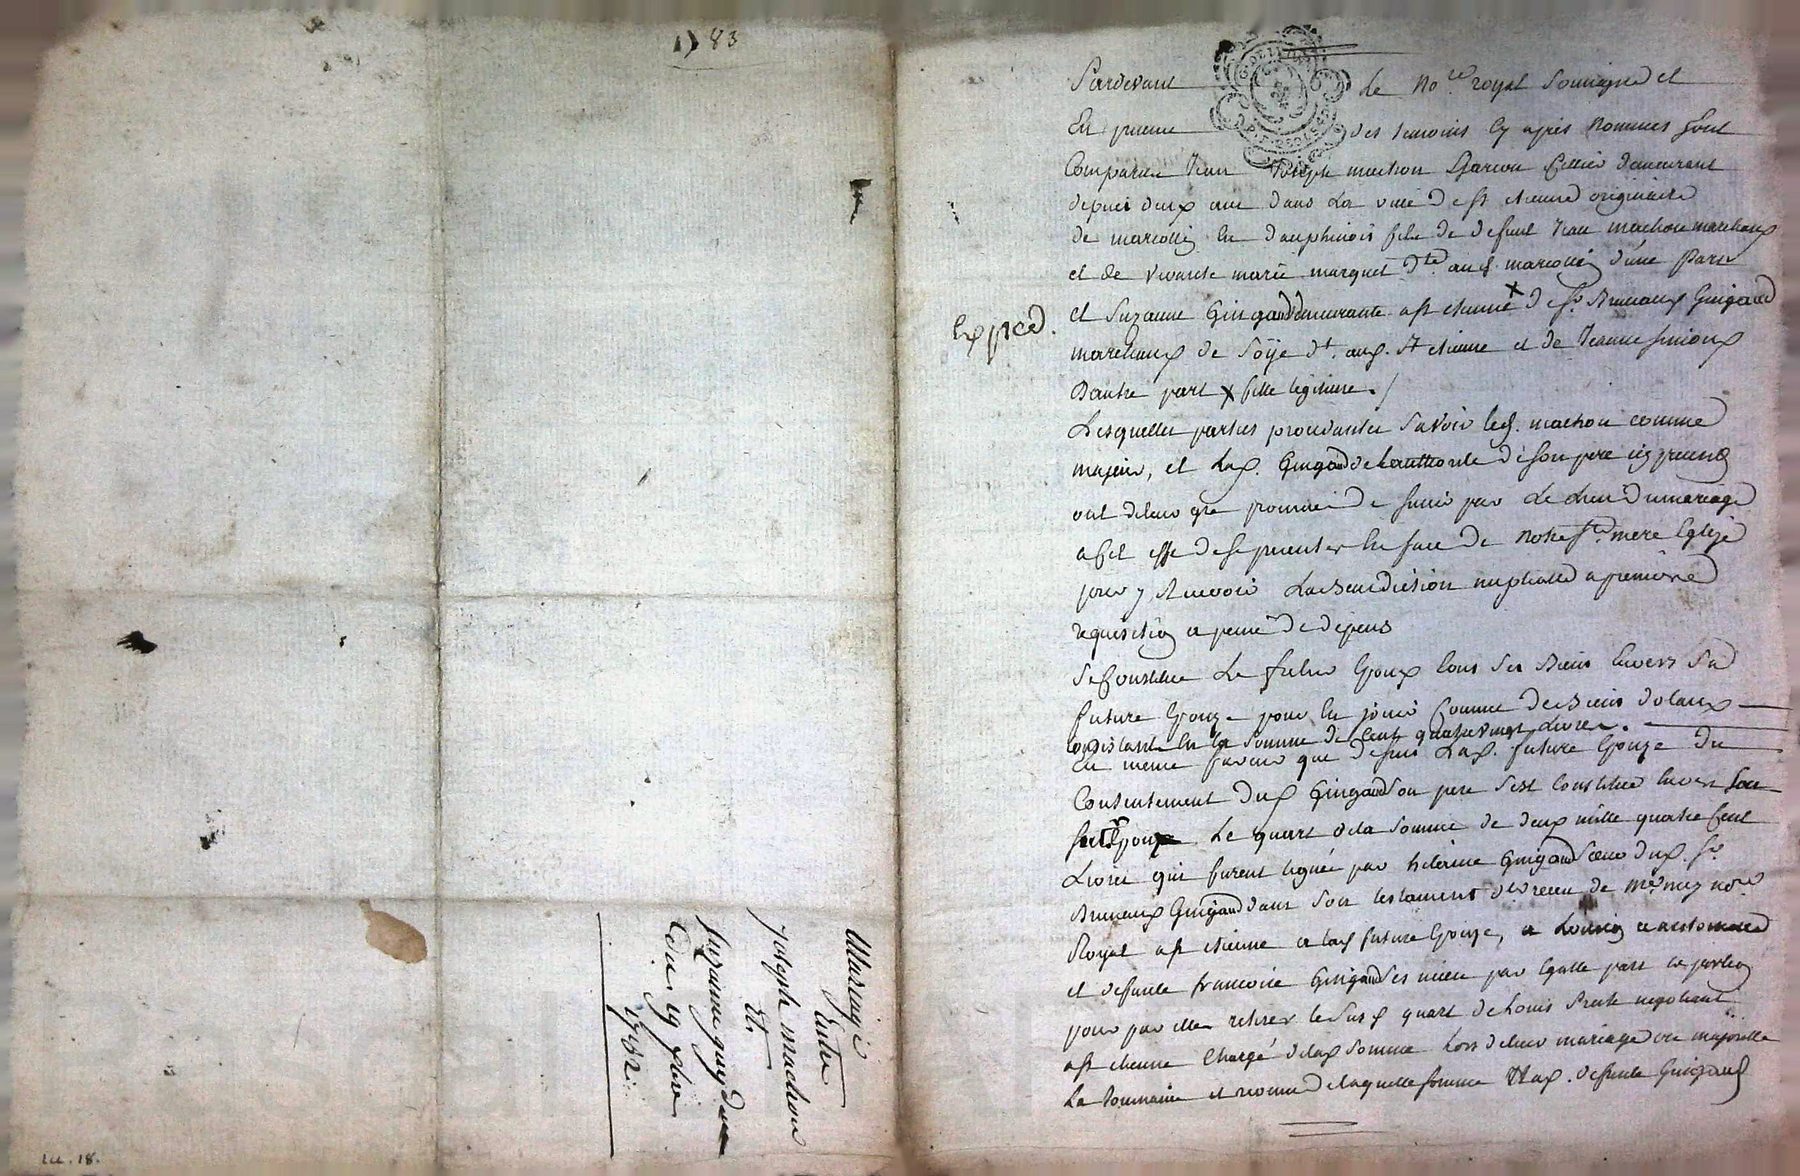 1783
Pardevant le No.re royal Soussigné et
En presence des temoins Cy après Nommés sont
Comparus Jean Joseph machon Garçon sellier demeurant
depuis deux ans dans La ville de st etienne originaire
de marcolin En dauphinois fils de defunt Jean machon marchand
et de vivante marie marquet d.te aud. marcolin d'une Part
Exped.
et Suzanne Guigaud demeurante a st etienne x de Sr. Guigaud
marchand de Soÿe dt. aud. St etienne et de Jeanne
Dautre part x fille legitime. /
Lesquelles parties procedantes Savoir led. machon comme
majeur, et Lad. Guigaud de Lauthorité de son pere icy present
ont de leur gré promis de sunir par Le Lien du mariage
a cet effet de se presenter En face de Notre Ste mere Eglize
pour y recevoir La Benediction nuptialle a premiere
requisition a peine de depens
Se Constitue Le futur Epoux tous ses Biens Envers Sa
future Epouze pour En jouir Comme de Biens dotaux
consistants En la Somme de Cent quatrevingt Livres.
En meme faveur que dessus Lad. future Epouze du
Consentement dud. Guigaud Son pere S'est Constitué Envers Son
fut. Epoux Le quart de la Somme de deux mille quatre Cent
Livres qui furent legués par Guigaud Soeur dud. Sr.
Guigaud dans Son testament reçeu de Me. no.re
Royal a st etienne a lad. future Epouze, a
et deffunte francoise Guigaud ses nieces par Egalle part et portion
pour par elles retirer le Susd. quart de Louis negotiant
a st etienne Chargé de lad. Somme Lors de leur mariage ou majorité
La Somme de laquelle Somme lad. deffunte Guigaud
Mariage
Entre
joseph machon
Et
suzanne guigaud
Du 19 9bre
1782